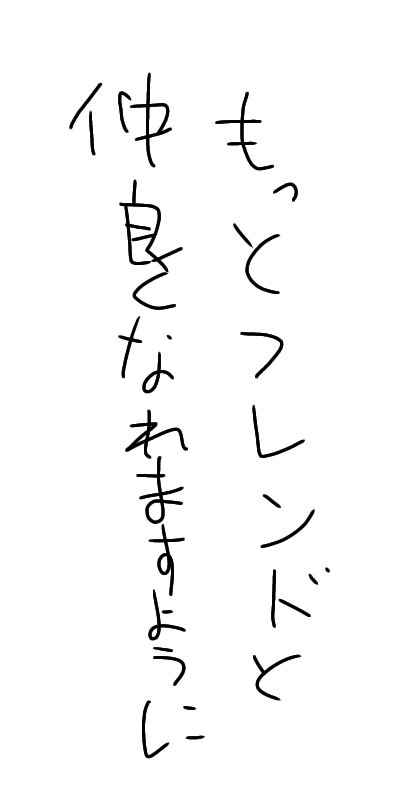 もっとフレンドと
仲良くなれますように